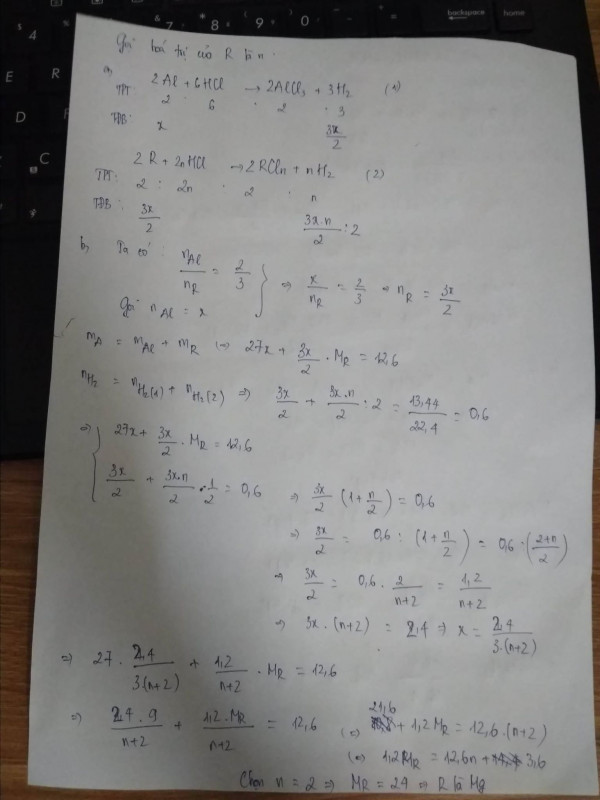 Gọi hoá trị của R là n.
a)
2Al + 6HCl → 2AlCl3 + 3H2 (1)
TPT: 2 . 6 . 2 . 3
TĐB: x 3x/2
2R + 2nHCl → 2RCln + nH2 (2)
TPT: 2 : 2n . 2 . n
TĐB: 3x/2 3x.n/2 : 2
b, Ta có: nAl/nR = 2/3
Gọi nAl = x } ⇒ x/nR = 2/3 ⇒ nR = 3x/2
mA = mAl + mR ⇔ 27x + 3x/2 . MR = 12,6
nH2 = nH2(1) + nH2(2) ⇒ 3x/2 + 3x.n/2 : 2 = 13,44/22,4 = 0,6
⇒ { 27x + 3x/2 . MR = 12,6
3x/2 + 3x.n/2 . 1/2 = 0,6 ⇒ 3x/2 (1 + n/2) = 0,6
⇒ 3x/2 = 0,6 : (1 + n/2) = 0,6 : (2+n/2)
⇒ 3x/2 = 0,6 . 2/n+2 = 1,2/n+2
⇒ 3x . (n+2) = 2,4 ⇒ x = 2,4/3.(n+2)
⇒ 27 . 2,4/3(n+2) + 1,2/n+2 . MR = 12,6
⇒ 2,4 . 9/n+2 + 1,2.MR/n+2 = 12,6 ⇔ 21,6 + 1,2MR = 12,6.(n+2)
⇔ 1,2MR = 12,6n + 3,6
Chọn n = 2 ⇒ MR = 24 ⇒ R là Mg
backspace
home
4
7
8
9
0
-
=
E
R
D
F
C